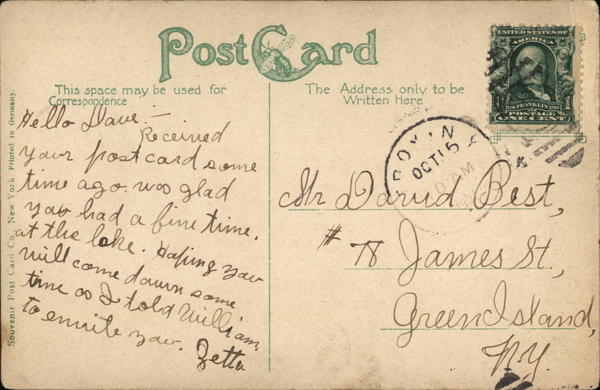 Post Card
This space may be used for
Correspondence
The Address only to be
Written Here
UNITED STATES OF
AMERICA
FRANKLIN
POSTAGE
1 ONE CENT 1
OCT 15
AM
N.Y.
Hello Dave:—
Received
your post card some
time ago. was glad
you had a fine time.
at the lake. Hoping you
will come down some
time as I told William
to envite you.
Zetta
Mr David Best,
# 78 James St,
Green Island,
N.Y.
Souvenir Post Card Co., New York Printed in Germany.